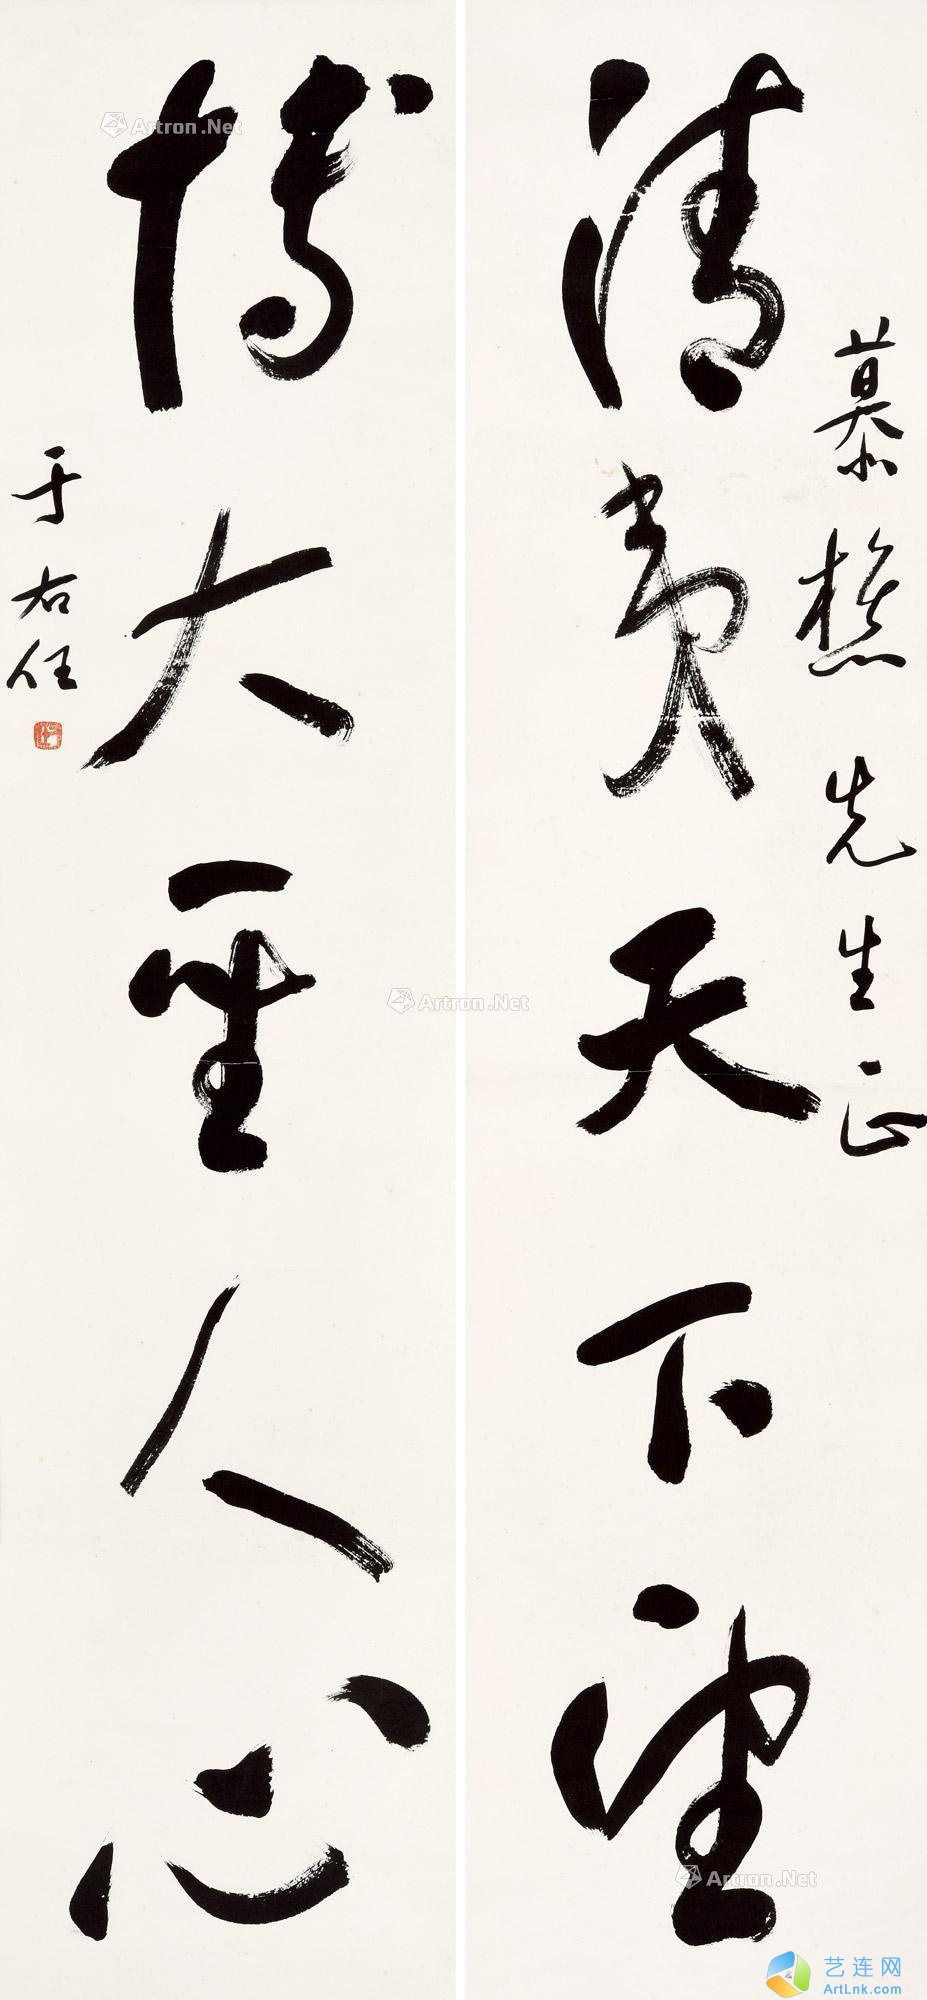 慕樵先生正
清夷天下望
博大聖人心
于右任
Artron.Net
Artron.Net
Artron.Net
艺连网
ArtLnk.com